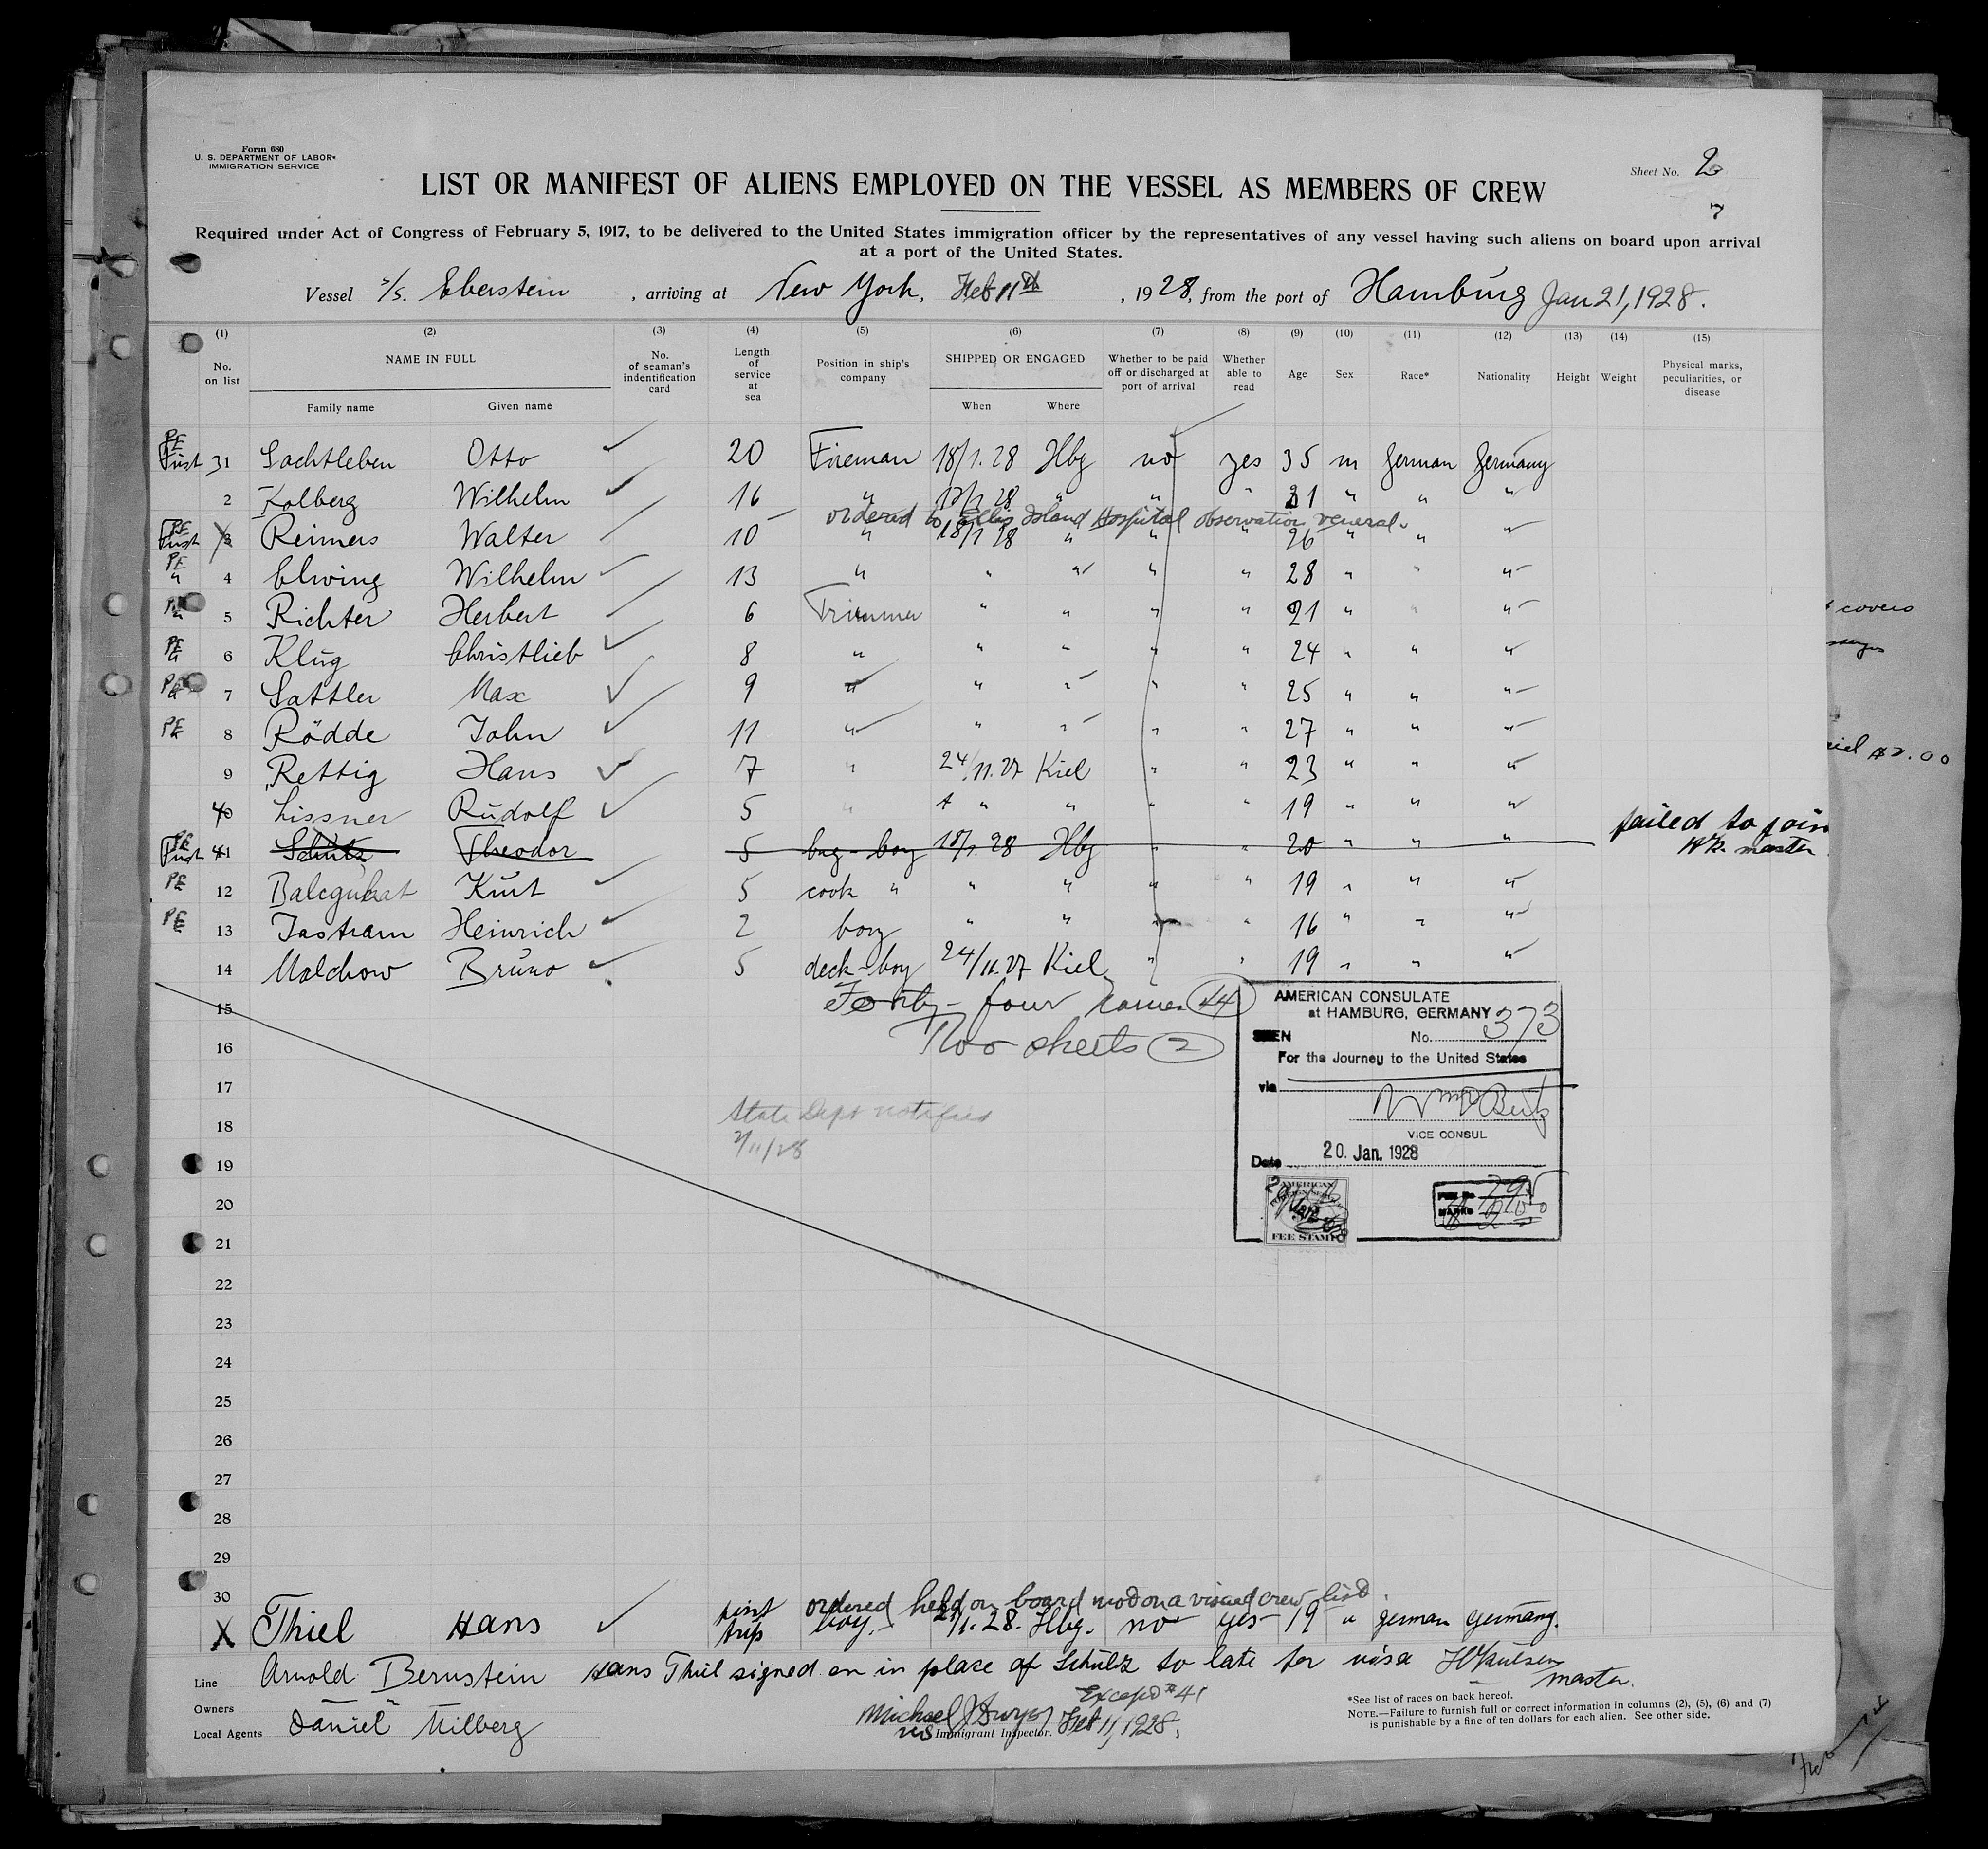 Form 680
U. S. DEPARTMENT OF LABOR
IMMIGRATION SERVICE
Sheet No. 2
7
LIST OR MANIFEST OF ALIENS EMPLOYED ON THE VESSEL AS MEMBERS OF CREW
Required under Act of Congress of February 5, 1917, to be delivered to the United States immigration officer by the representatives of any vessel having such aliens on board upon arrival
at a port of the United States.
Vessel s/s. Eberstein, arriving at New York, Feb 11th, 1928, from the port of Hamburg Jan 21, 1928.
(1) (2) (3) (4) (5) (6) (7) (8) (9) (10) (11) (12) (13) (14) (15)
No. on list NAME IN FULL Family name Given name No. of seaman's indentification card Length of service at sea Position in ship's company SHIPPED OR ENGAGED When Where Whether to be paid off or discharged at port of arrival Whether able to read Age Sex Race* Nationality Height Weight Physical marks, peculiarities, or disease
PE First 31 Sachtleben Otto ✓ 20 Fireman 18/1.28 Hbg no yes 35 m German Germany
2 Kolberg Wilhelm ✓ 16 " " " " 31 " " "
ordered to Ellis Island Hospital observation veneral.
PE First 3 Reimers Walter 10 " 18/1 28 " " " 26 " " "
PE " 4 Elwing Wilhelm 13 " " " " " 28 " " "
PE " 5 Richter Herbert 6 Trimmer " " " " 21 " " "
PE " 6 Klug Christlieb ✓ 8 " " " " " 24 " " "
PE " 7 Sattler Max ✓ 9 " " " " " 25 " " "
PE 8 Rödde John ✓ 11 " " " " " 27 " " "
9 Rettig Hans ✓ 7 " 24/11.27 Kiel " " 23 " " "
40 Lissner Rudolf ✓ 5 " " " " " 19 " " "
PE First 41 Schulz Theodor 5 bag-boy 18/1.28 Hbg " " 20 " " " failed to join
master
PE 12 Kurt ✓ 5 cook " " " " " 19 " " "
PE 13 Jastram Heinrich ✓ 2 boy " " " " 16 " " "
14 Malchow Bruno ✓ 5 deck-boy 24/11.27 Kiel " " 19 " " "
15
Forty-four names 44
16
Two sheets 2
17
18
State Dept notified
2/11/28
19
20
21
22
23
24
25
26
27
28
29
30
AMERICAN CONSULATE
at HAMBURG, GERMANY
SEEN No. 373
For the Journey to the United States
via
VICE CONSUL
Date 20. Jan. 1928
AMERICAN
FEE STAMP
ordered held on board not on a visaed crew list.
X Thiel Hans ✓ first trip boy. 21/1.28. Hbg. no yes 19 " german germany.
Line Arnold Bernstein Hans Thiel signed on in place of Schulz to late for visa
master.
Owners "
Local Agents Daniel Milberg
Except # 41
Michael J Dwyer Feb 11, 1928.
US Immigrant Inspector.
*See list of races on back hereof.
NOTE.—Failure to furnish full or correct information in columns (2), (5), (6) and (7)
is punishable by a fine of ten dollars for each alien. See other side.
covers
$2.00